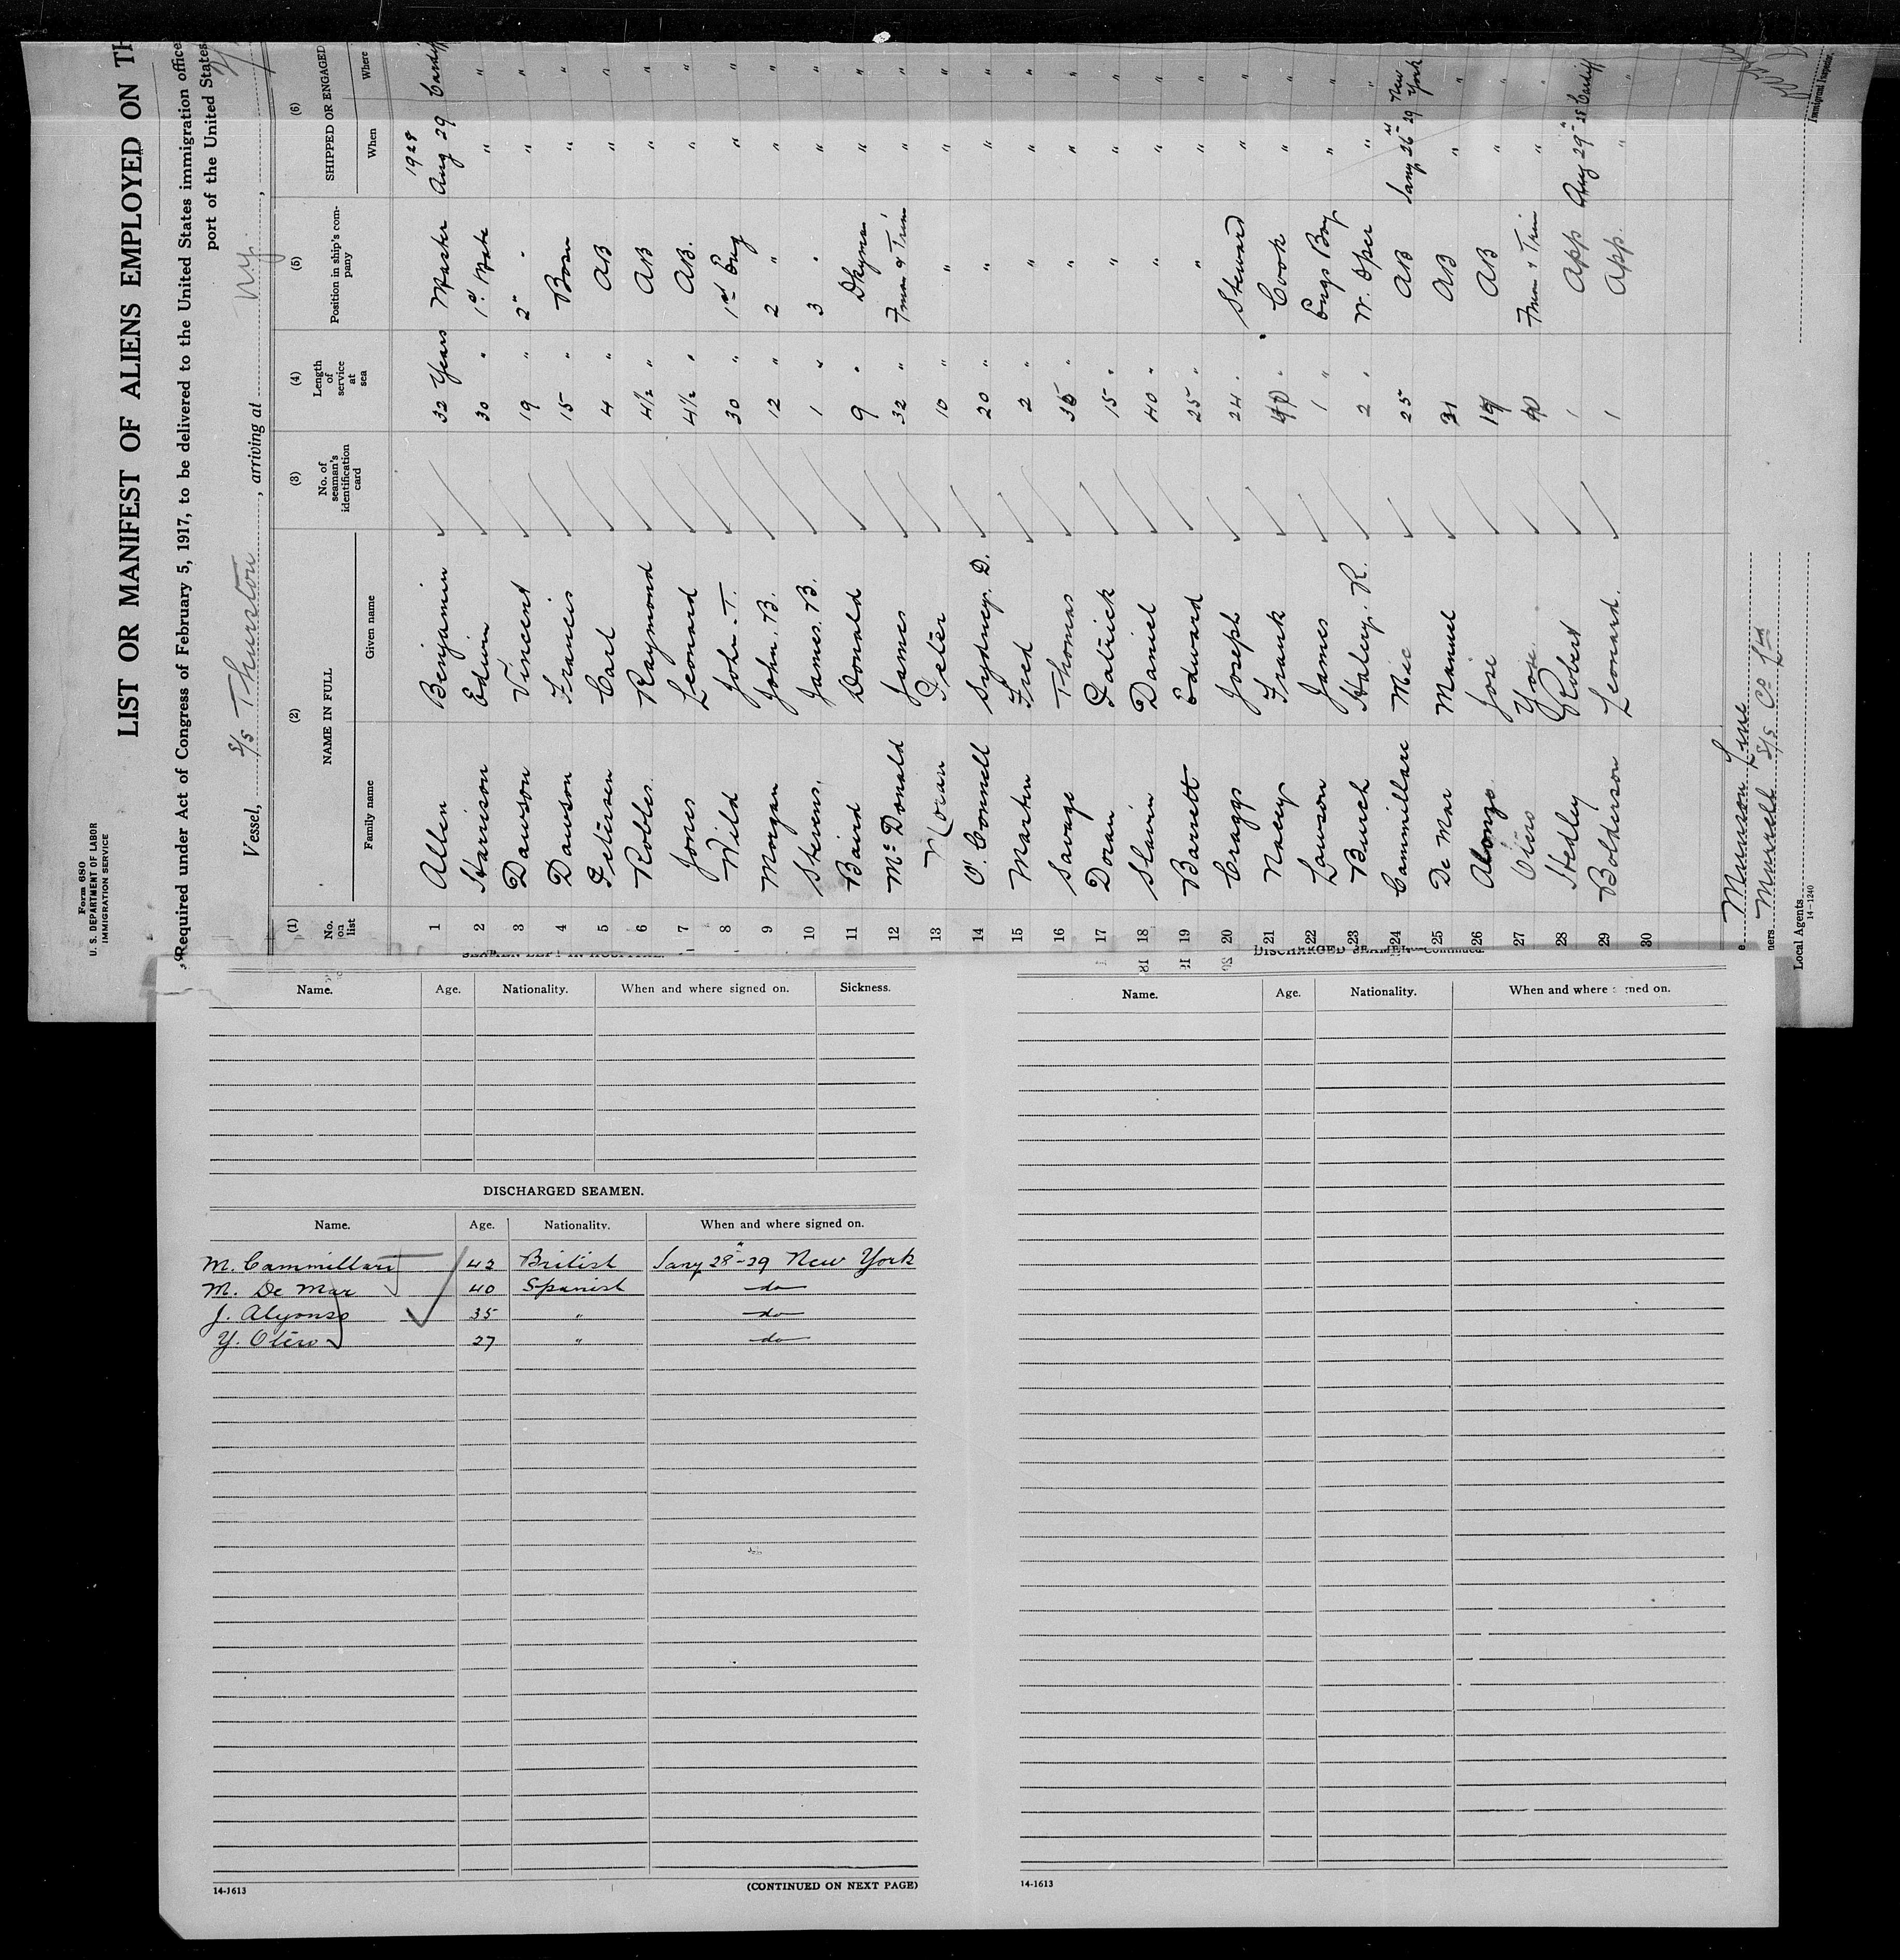 Form 680
U. S. DEPARTMENT OF LABOR
IMMIGRATION SERVICE
LIST OR MANIFEST OF ALIENS EMPLOYED ON TH
Required under Act of Congress of February 5, 1917, to be delivered to the United States immigration office
port of the United States
Vessel, S/S Thurston, arriving at N.Y.,
(1) (2) (3) (4) (5) (6)
No. on list NAME IN FULL No. of seaman's identification card Length of service at sea Position in ship's company SHIPPED OR ENGAGED
Family name Given name When Where
1928
1 Allen Benjamin 32 Years Master Aug 29 Cardiff
2 Harrison Edwin 30 " 1st Mate " "
3 Dawson Vincent 19 " 2" " " "
4 Dawson Francis 15 " Bosn " "
5 Petersen Carl 4 " AB " "
6 Robles Raymond 4½ " AB " "
7 Jones Leonard 4½ " AB. " "
8 Wild John. T. 30 " 1st Eng " "
9 Morgan John. B. 12 " 2 " " "
10 Stevens. James. B. 1 " 3 " " "
11 Baird Donald 9 " Dkyman " "
12 Mc Donald James 32 " Fman & Trim " "
13 Moran Peter 10 " " " "
14 O'Connell Sydney. D. 20 " " " "
15 Martin Fred 2 " " " "
16 Savage Thomas 36 " " " "
17 Doran Patrick 15 " " " "
18 Slavin Daniel 40 " " " "
19 Barrett Edward 25 " " " "
20 Craggs Joseph 24 " Steward " "
21 Nacey Frank Cook " "
22 Lawson James 1 " Engs Boy " "
23 Burch Haley. R. 2 " W. Oper " "
24 Cammillare Mic 25 AB Jany 26th 29 New York
25 De Mar Manuel 31 AB " "
26 Alonzo Jose 19 AB " "
27 Otero Fman & Trim " "
28 Hedley Robert 1 App Aug 29" 28 Cardiff
29 Bolderson Leonard. 1 App. " "
30
Munson Line
ners Murrell S/S Co Ltd
Local Agents
14-1240
Immigrant Inspector.
SEAMEN LEFT IN HOSPITAL.
Name. Age. Nationality. When and where signed on. Sickness.
DISCHARGED SEAMEN.
Name. Age. Nationality. When and where signed on.
M. Cammillari 42 British Jany 28"-29 New York
M. De Mar 40 Spanish do
J. Alyonso 35 " do
Y. Otero 27 " do
14-1613
(CONTINUED ON NEXT PAGE)
DISCHARGED SEAMEN—Continued.
18 19 20
Name. Age. Nationality. When and where signed on.
14-1613